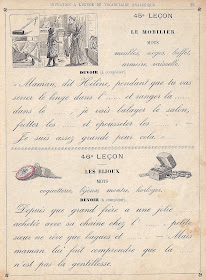 46e LEÇON
LE MOBILIER
MOTS
meubles, sièges, buffet,
armoire, vaisselle.
DEVOIR A COMPLÉTER.
— Maman, dit Hélène, pendant que tu vas
serrer le linge dans l'..... et ranger la.....
dans le ..... je vais balayer le salon,
frotter les ..... et épousseter les .....
Je suis assez grande pour cela.
46e LEÇON
LES BIJOUX
MOTS
coquetterie, bijoux, montre, horloger.
DEVOIR A COMPLÉTER.
Depuis que grand frère a une jolie .....
achetée avec sa chaîne chez l'..... petite
sœur ne rêve que bagues et ..... Mais
maman lui fait comprendre que la .....
n'est pas la gentillesse.